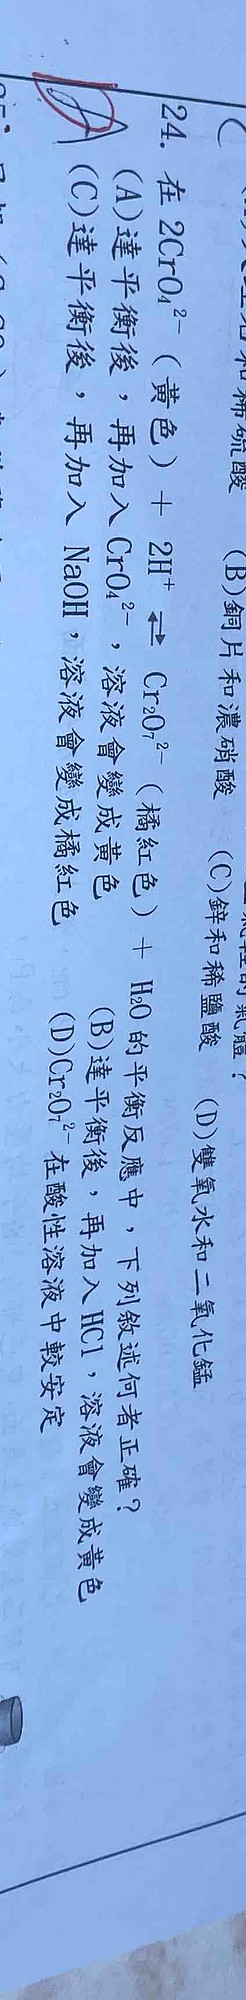 和稀硫酸 (B)銅片和濃硝酸 (C)鋅和稀鹽酸 (D)雙氧水和二氧化錳
24. 在 2CrO₄²⁻(黃色) + 2H⁺ ⇌ Cr₂O₇²⁻(橘紅色) + H₂O 的平衡反應中,下列敘述何者正確?
(A)達平衡後,再加入 CrO₄²⁻,溶液會變成黃色 (B)達平衡後,再加入HCl,溶液會變成黃色
(C)達平衡後,再加入 NaOH,溶液會變成橘紅色 (D)Cr₂O₇²⁻在酸性溶液中較安定